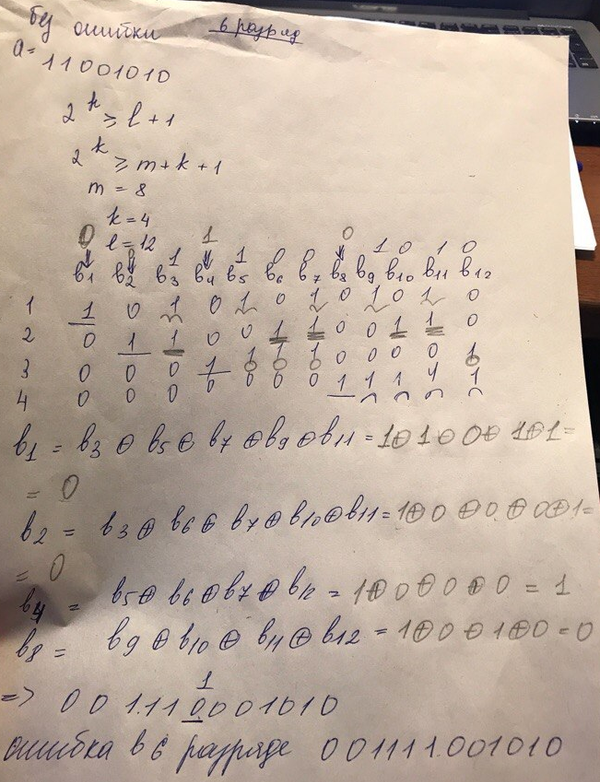 без ошибки 6 разряд
a = 11001010
2^k ≥ l + 1
2^k ≥ m + k + 1
m = 8
k = 4
l = 12
0 0 1 1 1 0 0 0 1 0 1 0
b1 b2 b3 b4 b5 b6 b7 b8 b9 b10 b11 b12
1 1 0 1 0 1 0 1 0 1 0 1 0
2 0 1 1 0 0 1 1 0 0 1 1 0
3 0 0 0 1 1 1 1 0 0 0 0 1
4 0 0 0 0 0 0 0 1 1 1 1 1
b1 = b3 ⊕ b5 ⊕ b7 ⊕ b9 ⊕ b11 = 1⊕1⊕0⊕1⊕1 =
= 0
b2 = b3 ⊕ b6 ⊕ b7 ⊕ b10 ⊕ b11 = 1⊕0⊕0⊕0⊕1 =
= 0
b4 = b5 ⊕ b6 ⊕ b7 ⊕ b12 = 1⊕0⊕0⊕0 = 1
b8 = b9 ⊕ b10 ⊕ b11 ⊕ b12 = 1⊕0⊕1⊕0 = 0
1
=> 0 0 1.1 1 0 0 0 1 0 1 0
ошибка в 6 разряде 001111.001010